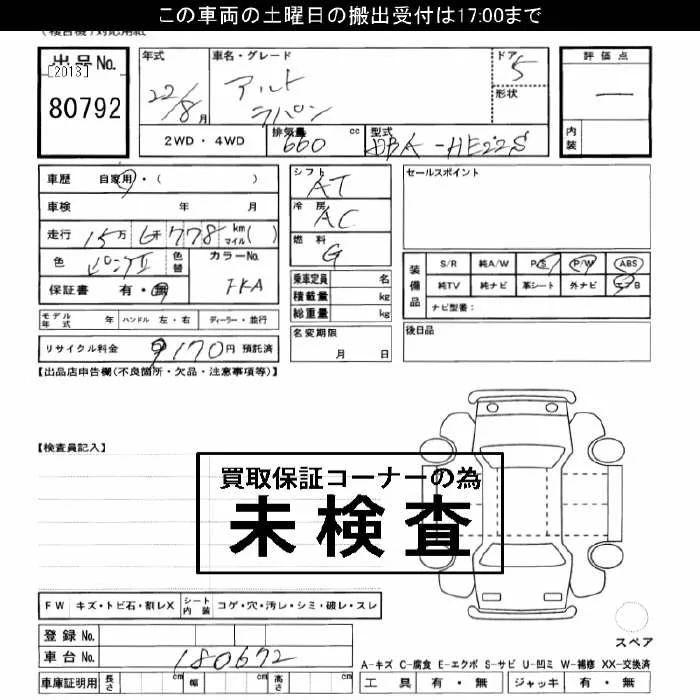 この車両の土曜日の搬出受付は17:00まで
(複合機)対応用紙
出品No. [2013]
80792
年式 22/8月
車名・グレード アルト ラパン
ドア 5
形状
評価点 —
内装
2WD・4WD
排気量 660 cc
型式 DBA-HE22S
車歴 自家用・( )
車検 年 月
走行 15万6千778 km マイル( )
色 ピンクII 色替
カラーNo. FKA
保証書 有・無
シフト AT
冷房 AC
燃料 G
乗車定員 名
積載量 kg
総重量 kg
セールスポイント
装備品 S/R 純A/W P/S P/W ABS
純TV 純ナビ 革シート 外ナビ エアB
ナビ型番:
モデル年式 年 ハンドル 左・右 ディーラー・並行
名変期限 月 日
後日品
リサイクル料金 9170円 預託済
【出品店申告欄(不良箇所・欠品・注意事項等)】
【検査員記入】
買取保証コーナーの為
未検査
FW キズ・トビ石・割レX シート内装 コゲ・穴・汚レ・シミ・破レ・スレ
登録No.
車台No. 180672
スペア
車庫証明用 長さ cm 幅 cm 高さ cm
A-キズ C-腐食 E-エクボ S-サビ U-凹ミ W-補修 XX-交換済
工具 有・無 ジャッキ 有・無